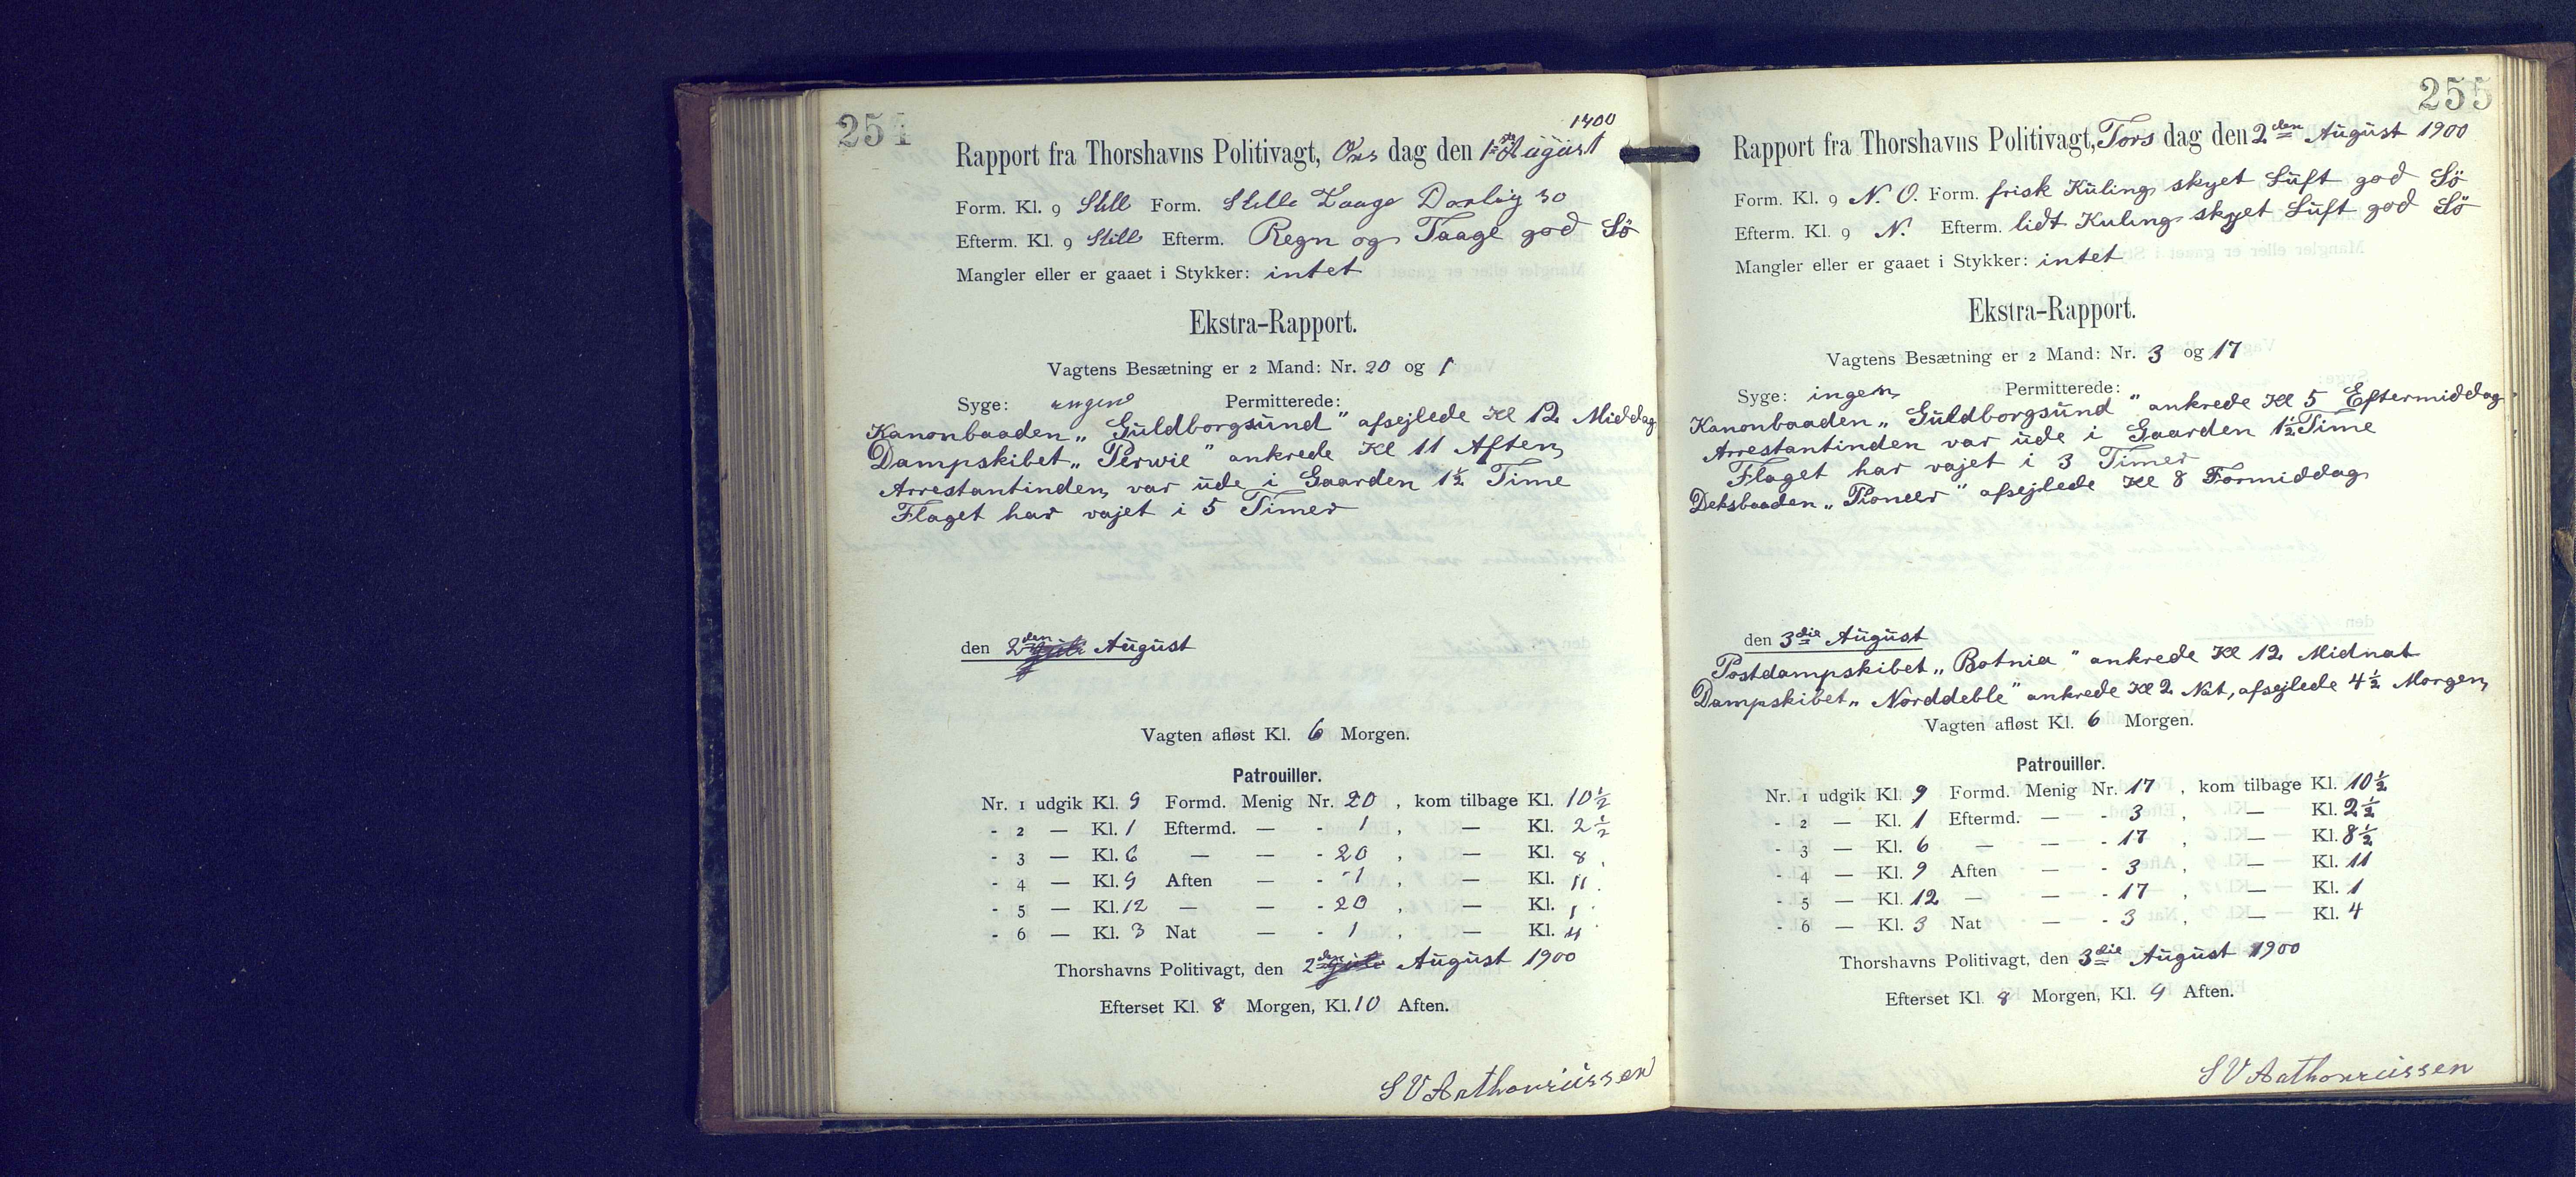 254
1900
Rapport fra Thorshavns Politivagt, Ons dag den 1ste August
Form. Kl. 9 Still Form. Stille Taage Daarlig So
Efterm. Kl. 9 Still Efterm. Regn og Taage god Sö
Mangler eller er gaaet i Stykker: intet
Ekstra-Rapport.
Vagtens Besætning er 2 Mand: Nr. 20 og 1
Syge: ingen Permitterede:
Kanonbaaden „Guldborgsund" afsejlede Kl 12 Middag
Dampskibet „Perwie" ankrede Kl 11 Aften
Arrestantinden var ude i Gaarden 1½ Time
Flaget har vajet i 5 Timer
den 2den August
Vagten afløst Kl. 6 Morgen.
Patrouiller.
Nr. 1 udgik Kl. 9 Formd. Menig Nr. 20 , kom tilbage Kl. 10½
- 2 — Kl. 1 Eftermd. — - 1 , — Kl. 2½
- 3 — Kl. 6 — — - 20 , — Kl. 8
- 4 — Kl. 9 Aften — - 1 , — Kl. 11
- 5 — Kl. 12 — — - 20 , — Kl. 1
- 6 — Kl. 3 Nat — - 1 , — Kl. 4
Thorshavns Politivagt, den 2den August 1900
Efterset Kl. 8 Morgen, Kl. 10 Aften.
S V Anthoniussen
255
Rapport fra Thorshavns Politivagt, Tors dag den 2den August 1900
Form. Kl. 9 N. O. Form. frisk Kuling skyet Luft god Sö
Efterm. Kl. 9 N. Efterm. lidt Kuling skyet Luft god Sö
Mangler eller er gaaet i Stykker: intet
Ekstra-Rapport.
Vagtens Besætning er 2 Mand: Nr. 3 og 17
Syge: ingen Permitterede:
Kanonbaaden „Guldborgsund" ankrede Kl 5 Eftermiddag
Arrestantinden var ude i Gaarden 1½ Time
Flaget har vajet i 3 Timer
Deksbaaden „Pioneer" afsejlede Kl 8 Formiddag
den 3die August
Postdampskibet „Botnia" ankrede Kl 12 Midnat
Dampskibet „Norddeble" ankrede Kl 2 Nat, afsejlede 4½ Morgen
Vagten afløst Kl. 6 Morgen.
Patrouiller.
Nr. 1 udgik Kl. 9 Formd. Menig Nr. 17 , kom tilbage Kl. 10½
- 2 — Kl. 1 Eftermd. — - 3 , — Kl. 2½
- 3 — Kl. 6 — — - 17 , — Kl. 8½
- 4 — Kl. 9 Aften — - 3 , — Kl. 11
- 5 — Kl. 12 — — - 17 , — Kl. 1
- 6 — Kl. 3 Nat — - 3 , — Kl. 4
Thorshavns Politivagt, den 3die August 1900
Efterset Kl. 8 Morgen, Kl. 9 Aften.
S V Anthoniussen